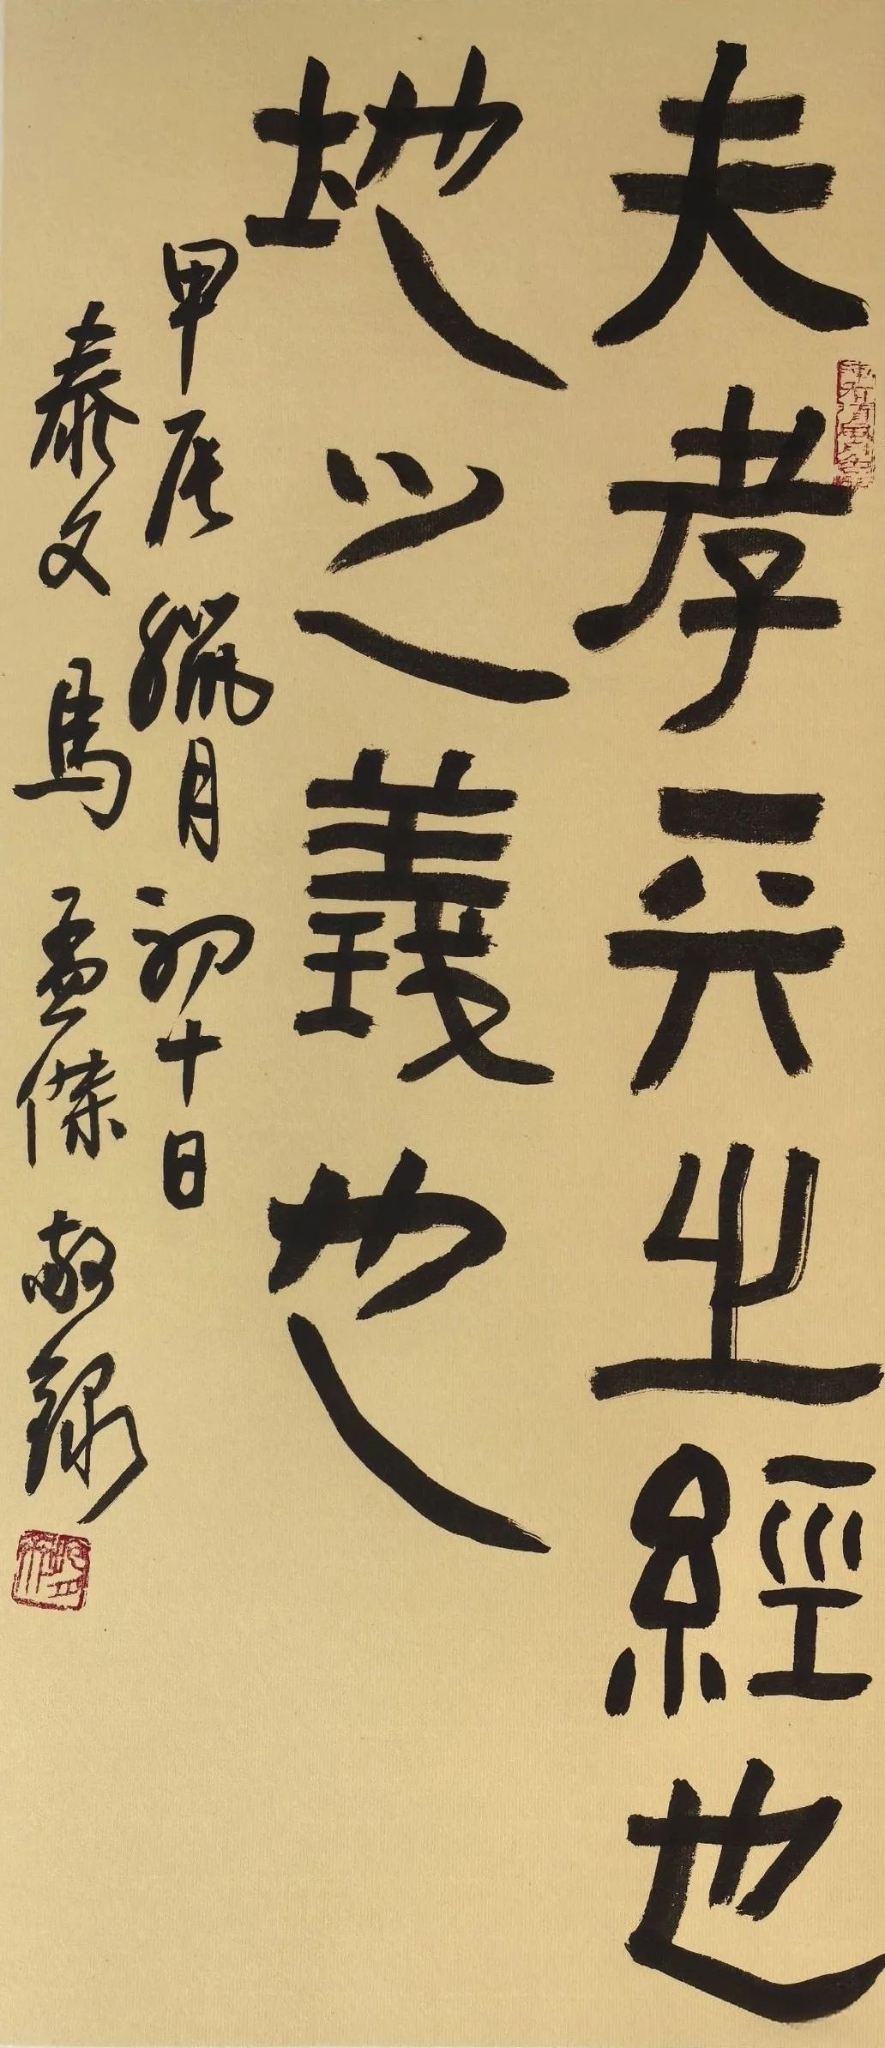 夫孝天之經也
地之義也
甲辰臘月初十日
泰文馬孟傑敬錄